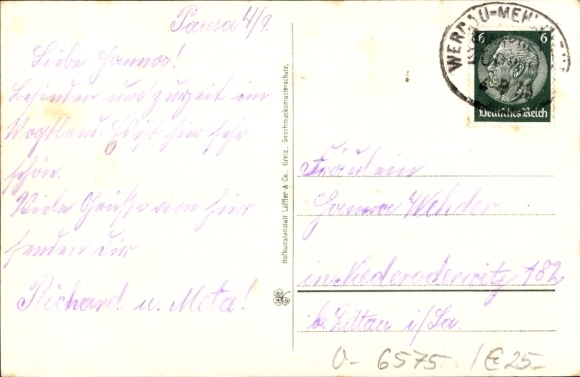 Pausa 4/9.
Liebe Hanna!
Befinden uns zurzeit im
Vogtland. Es ist hier sehr
schön.
Viele Grüße von hier
senden Dir
Richard u. Meta!
Hofkunstanstalt Löffler & Co., Greiz. Geschmacksmusterschutz.
WERDAU-MEH
6 6
Deutsches Reich
Fräulein
Hanna Wehder
in Niederoderwitz 182
b. Zittau i/Sa
0- 6575 /E 25-